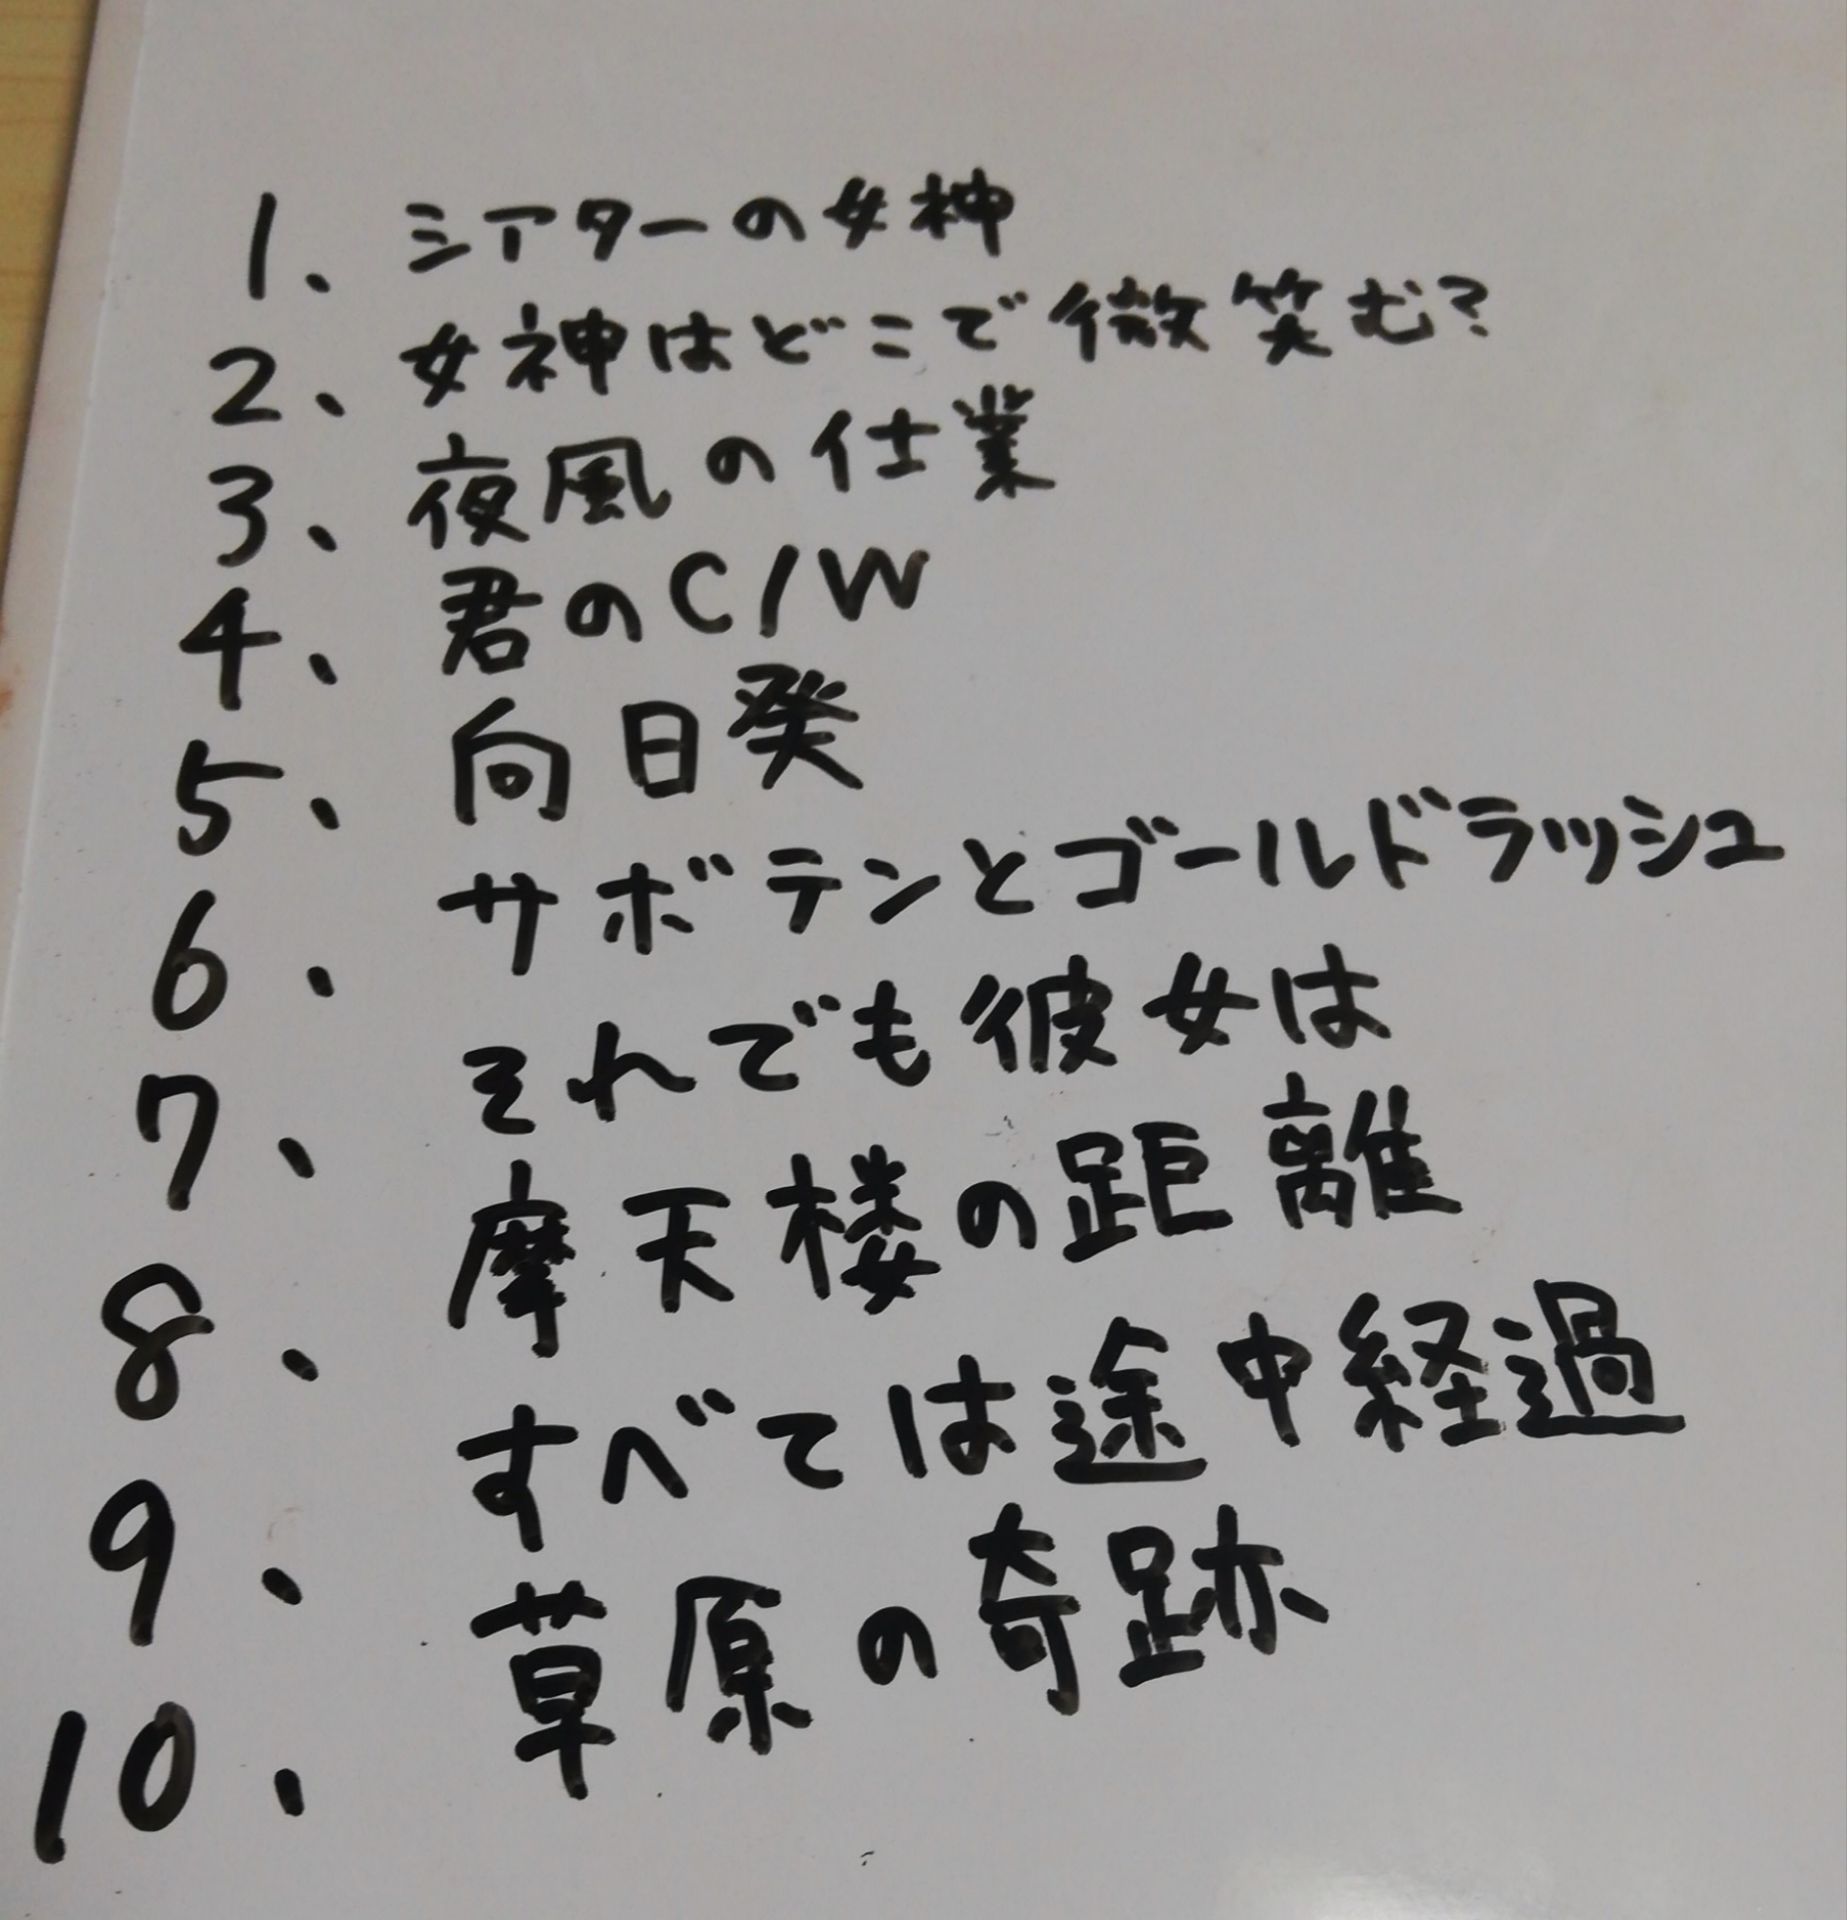 1、シアターの女神
2、女神はどこで微笑む?
3、夜風の仕業
4、君のC/W
5、向日癸
6、サボテンとゴールドラッシュ
7、それでも彼女は
8、摩天楼の距離
9、すべては途中経過
10、草原の奇跡